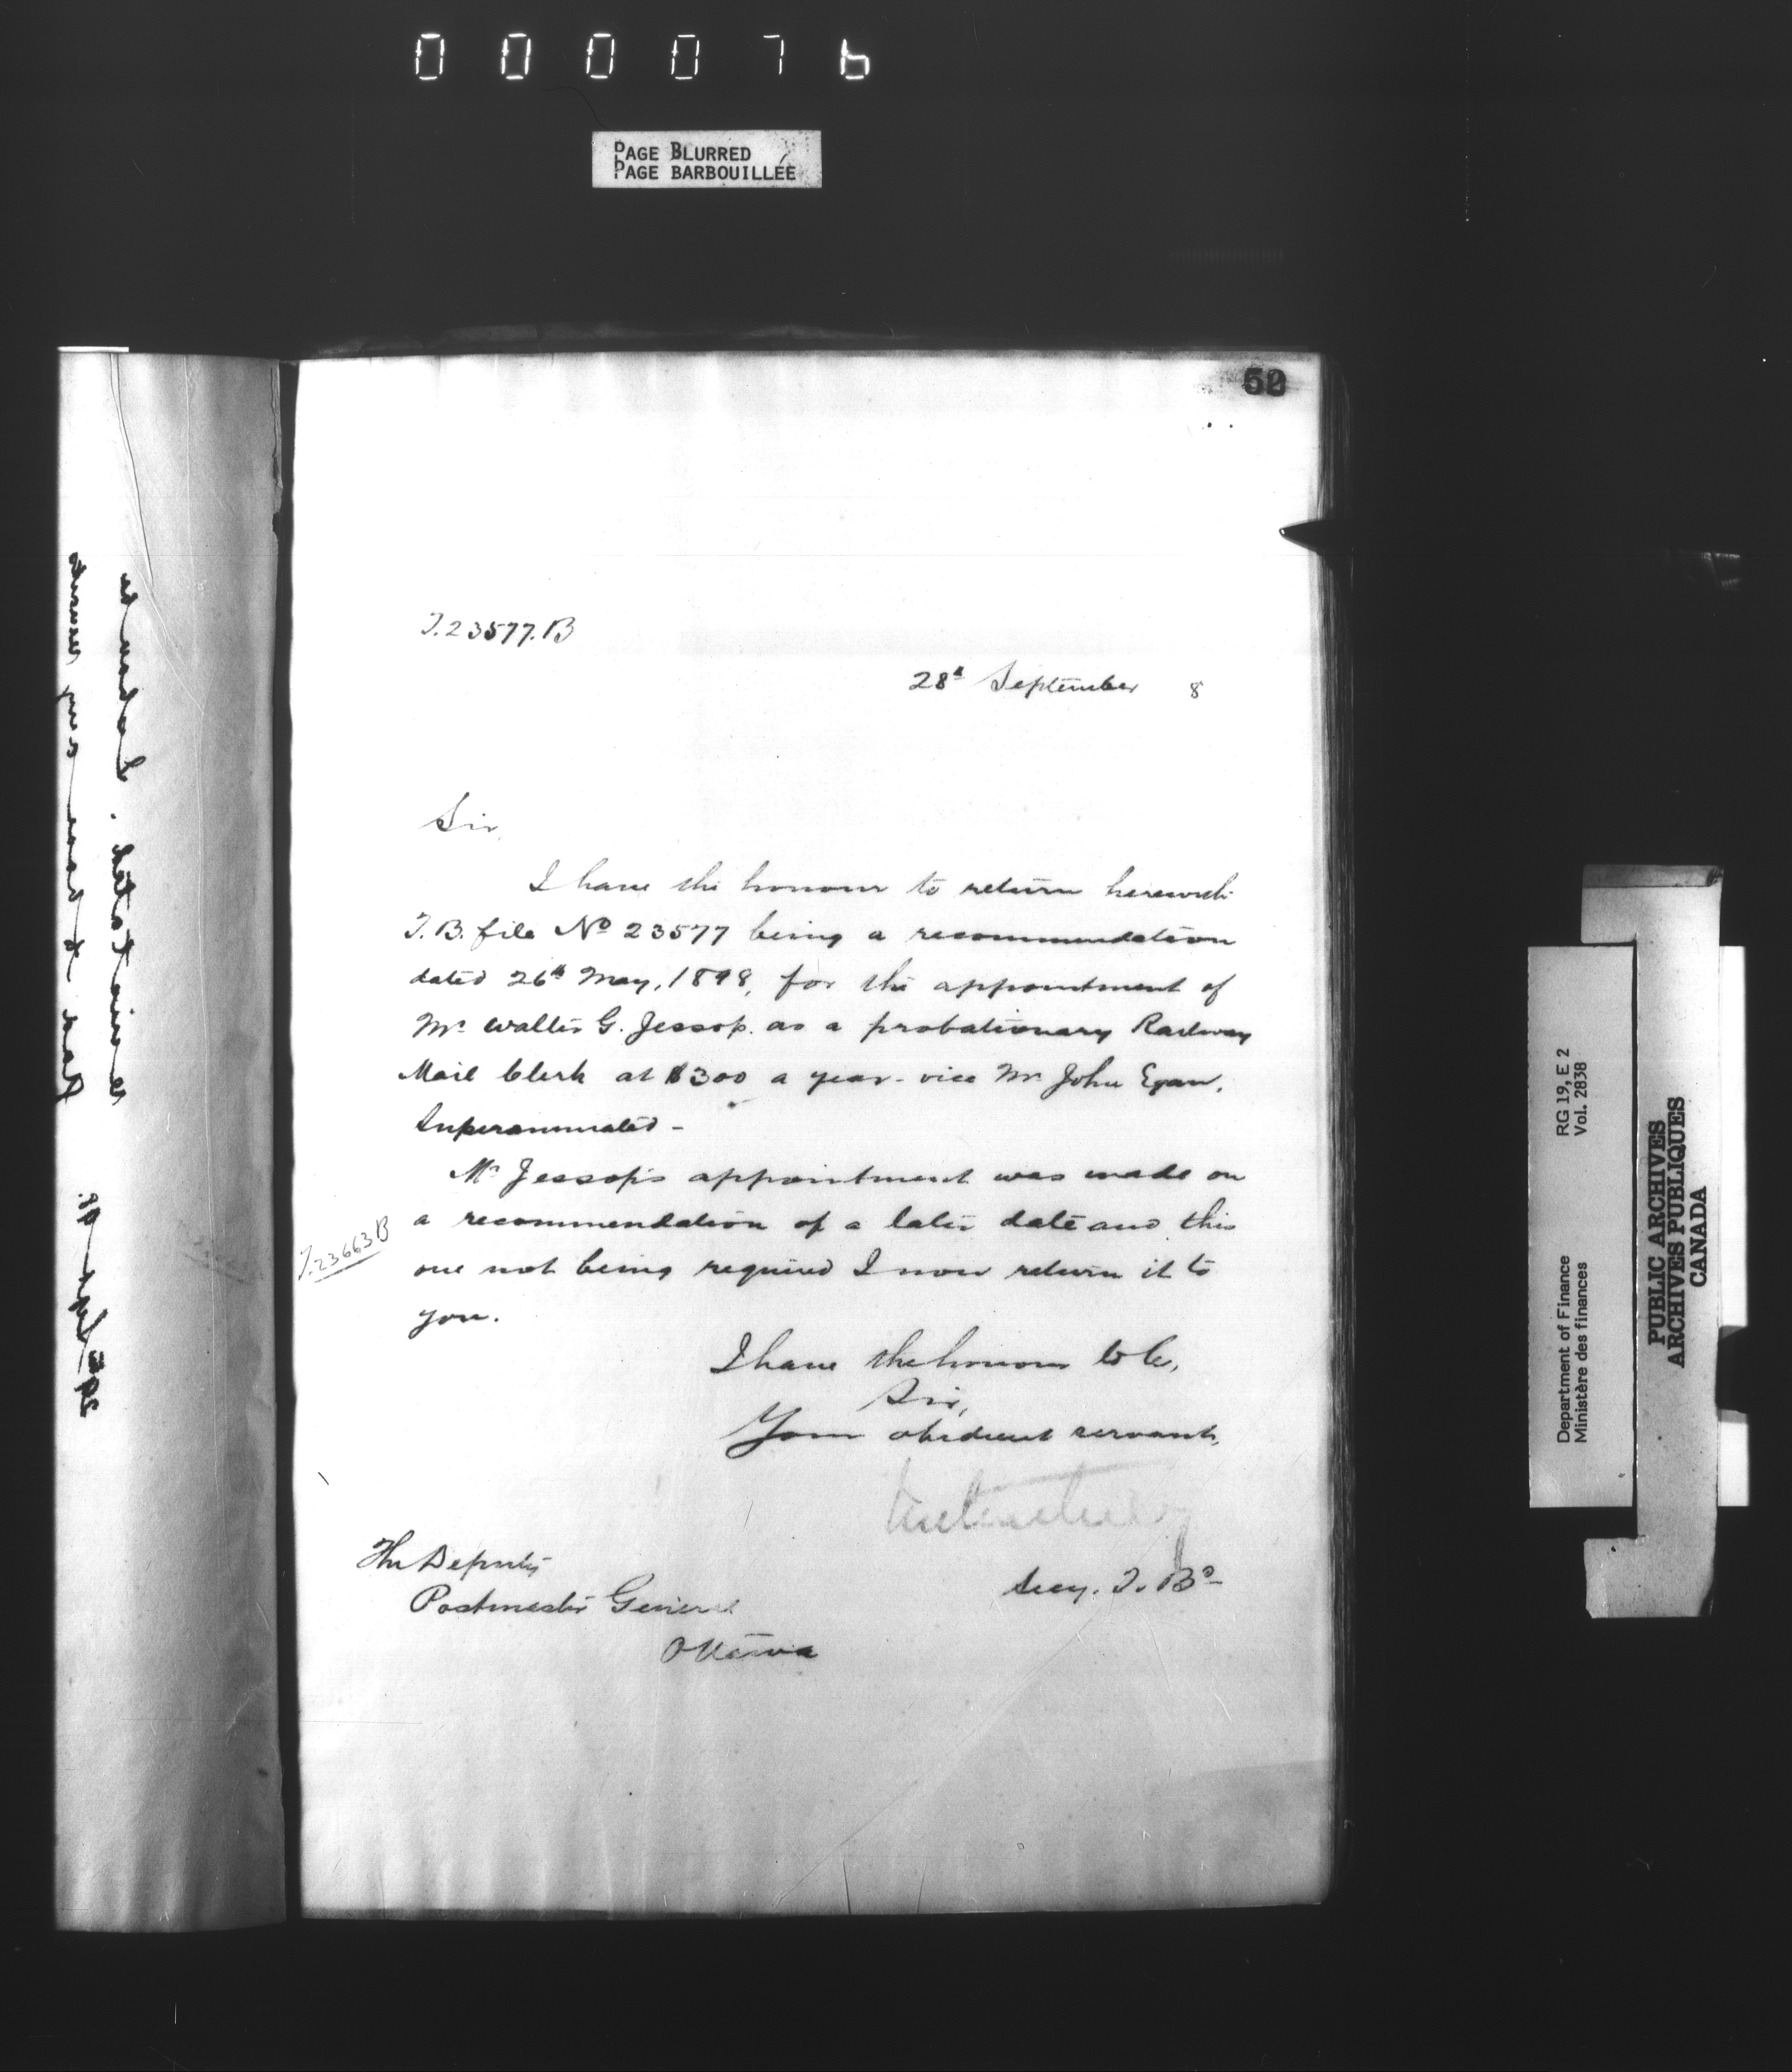 000076
PAGE BLURRED
PAGE BARBOUILLÉE
52
T.23577.B
28th September 8
Sir,
I have the honour to return herewith
T.B. file No 23577 being a recommendation
dated 26th May, 1898, for the appointment of
Mr Walter G. Jessop. as a probationary Railway
Mail Clerk at $300 a year - vice Mr John Egan,
Superannuated -
Mr Jessop's appointment was made on
a recommendation of a later date and this
T.23663B
one not being required I now return it to
you.
I have the honour to be,
Sir,
Your obedient servant,
Secy. T. Bd
The Deputy
Postmaster General
Ottawa
29 Sept 98.
RG 19, E 2
Vol. 2838
Department of Finance
Ministère des finances
PUBLIC ARCHIVES
ARCHIVES PUBLIQUES
CANADA